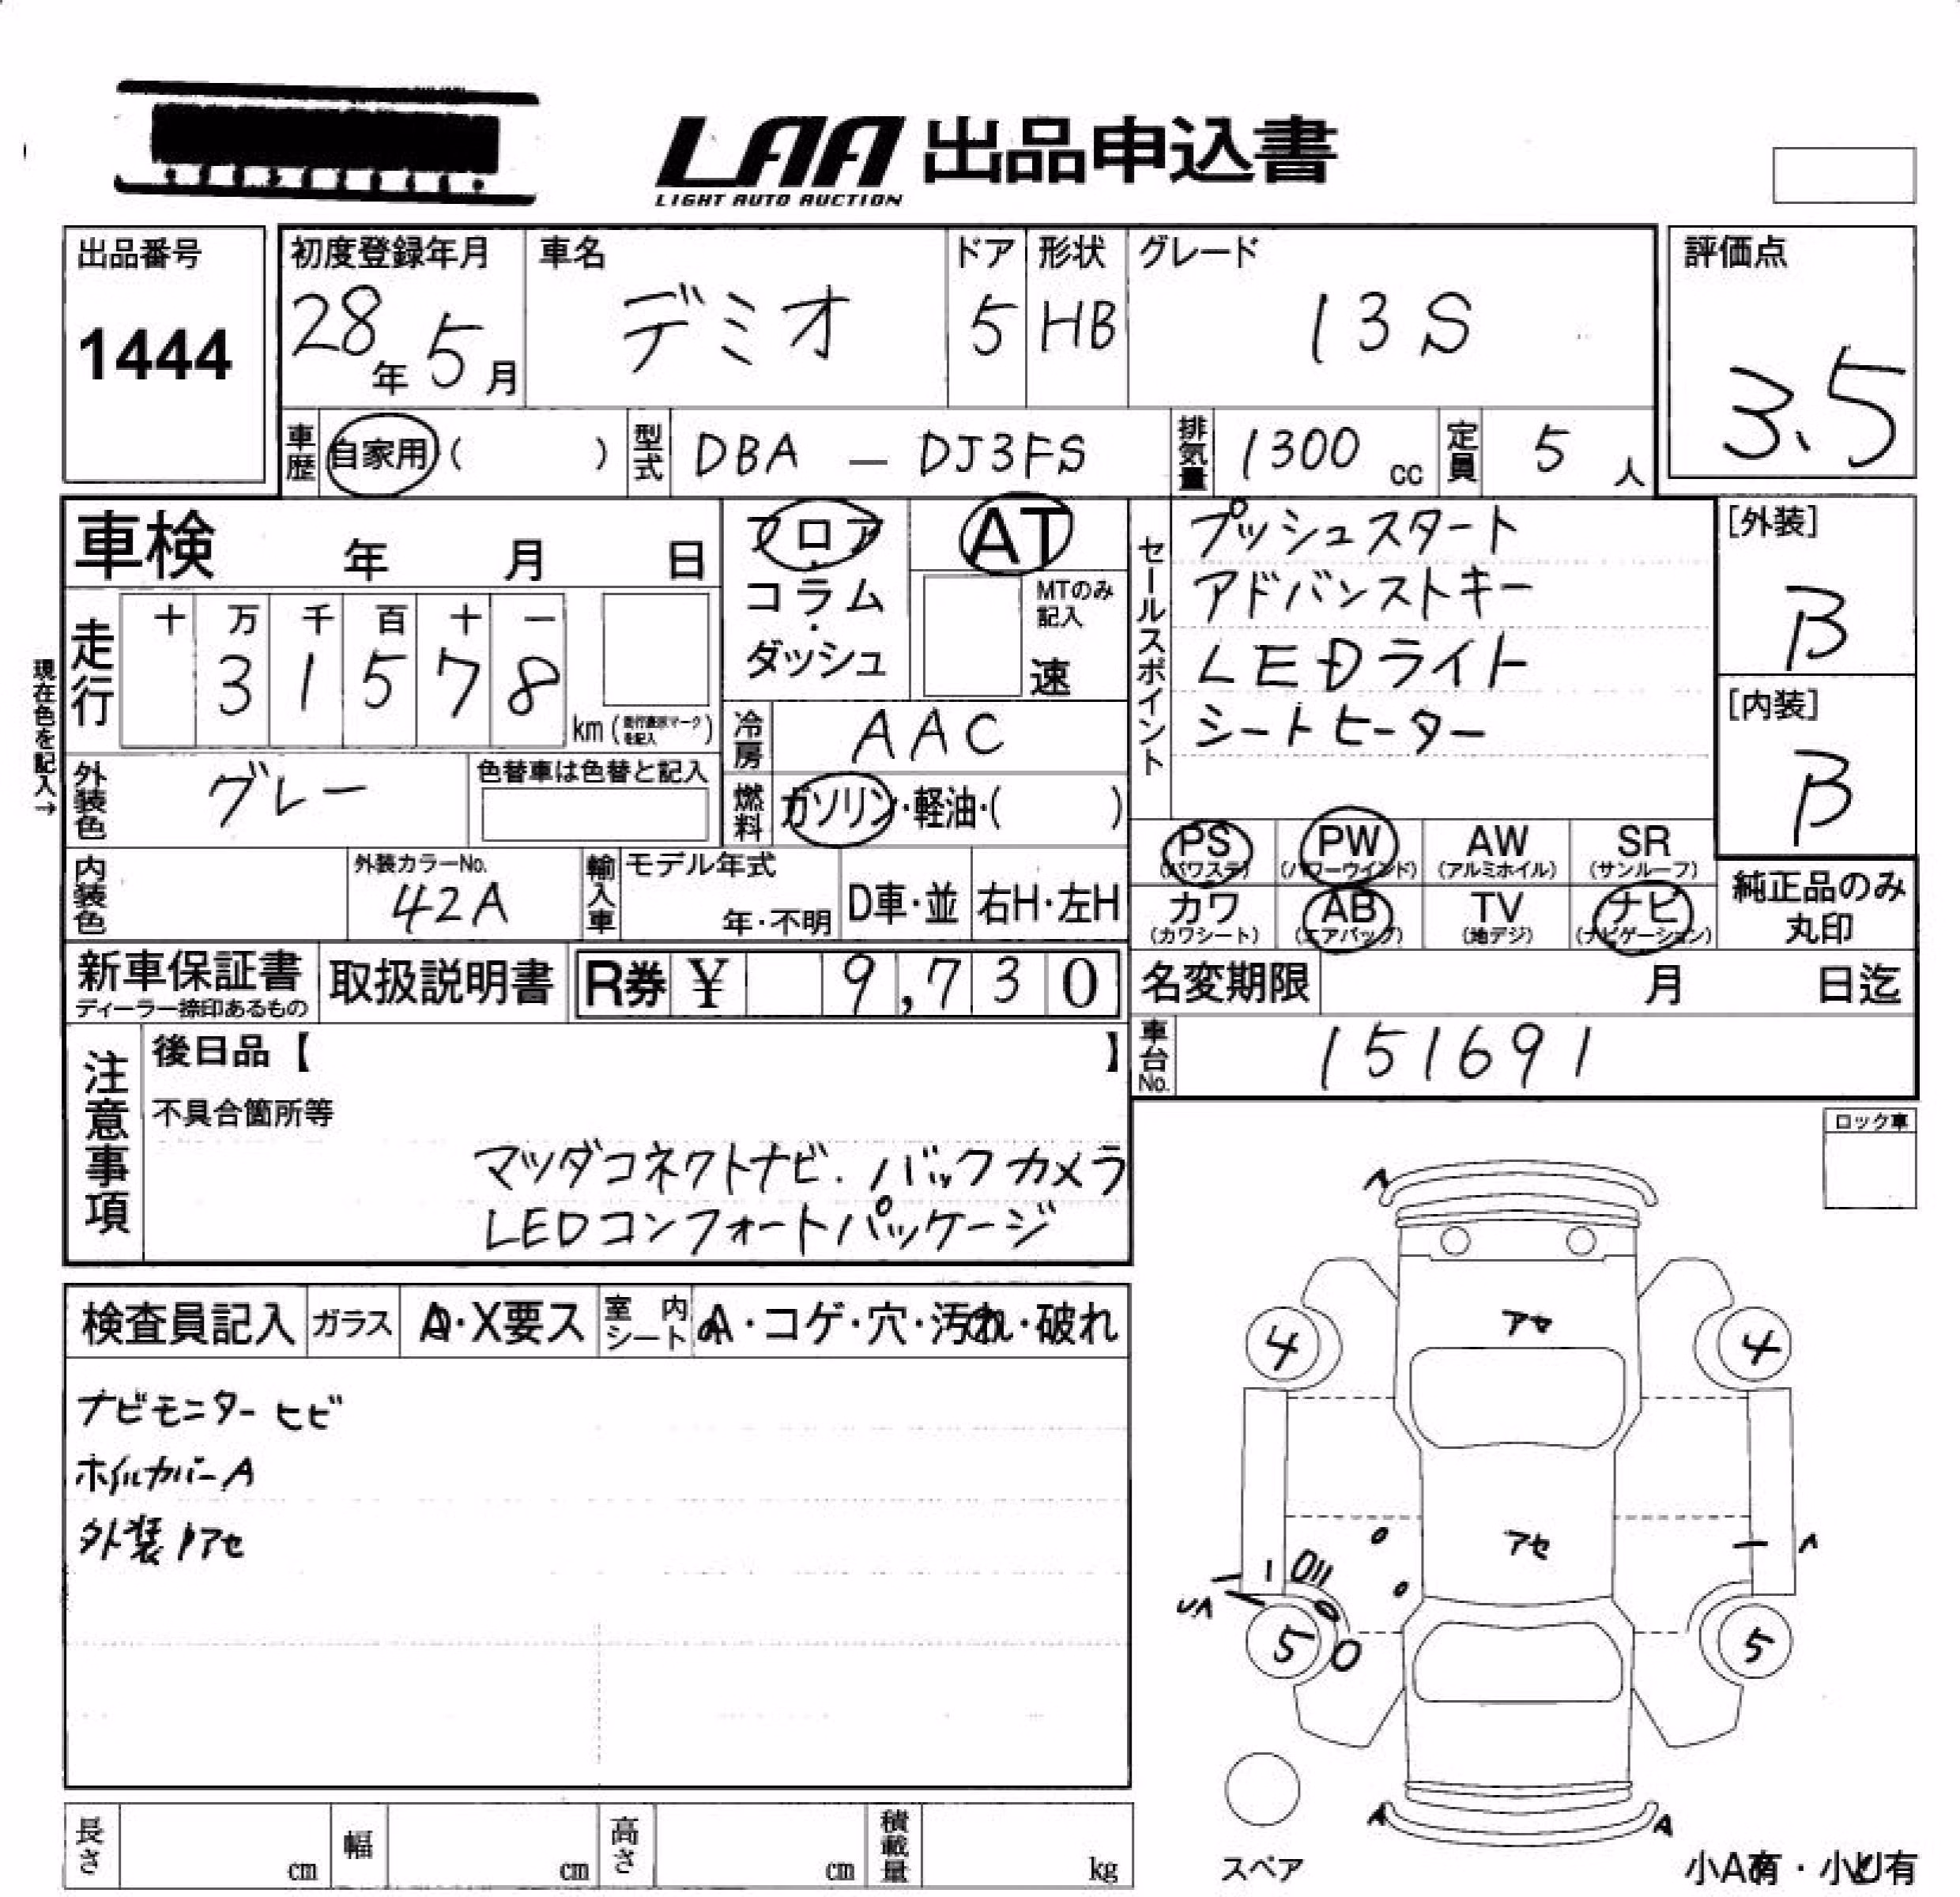 LAA 出品申込書
LIGHT AUTO AUCTION
出品番号
1444
初度登録年月
28年 5月
車名
デミオ
ドア
5
形状
HB
グレード
13S
評価点
3.5
車歴 自家用 ( )
型式 DBA — DJ3FS
排気量 1300 cc
定員 5 人
車検 年 月 日
フロア・コラム・ダッシュ
AT
MTのみ記入
速
セールスポイント
プッシュスタート
アドバンストキー
LEDライト
シートヒーター
[外装]
B
[内装]
B
現在色を記入→
走行
十 万 千 百 十 一
3 1 5 7 8
km (走行表示マークを記入)
冷房 AAC
外装色 グレー
色替車は色替と記入
燃料 ガソリン・軽油・( )
PS (パワステ) PW (パワーウインド) AW (アルミホイル) SR (サンルーフ)
カワ (カワシート) AB (エアバッグ) TV (地デジ) ナビ (ナビゲーション)
純正品のみ丸印
内装色
外装カラーNo.
42A
輸入車 モデル年式
年・不明
D車・並
右H・左H
新車保証書
ディーラー捺印あるもの
取扱説明書
R券 ¥ 9,730
名変期限 月 日迄
車台No. 151691
注意事項
後日品【 】
不具合箇所等
マツダコネクトナビ. バックカメラ
LEDコンフォートパッケージ
ロック車
検査員記入
ガラス A・X要ス
室内シート A・コゲ・穴・汚れ・破れ
ナビモニター ヒビ
ホイルカバーA
外装アセ
A
アセ
4 4
アセ
5 5
A A
スペア
小A有・小U有
長さ cm
幅 cm
高さ cm
積載量 kg